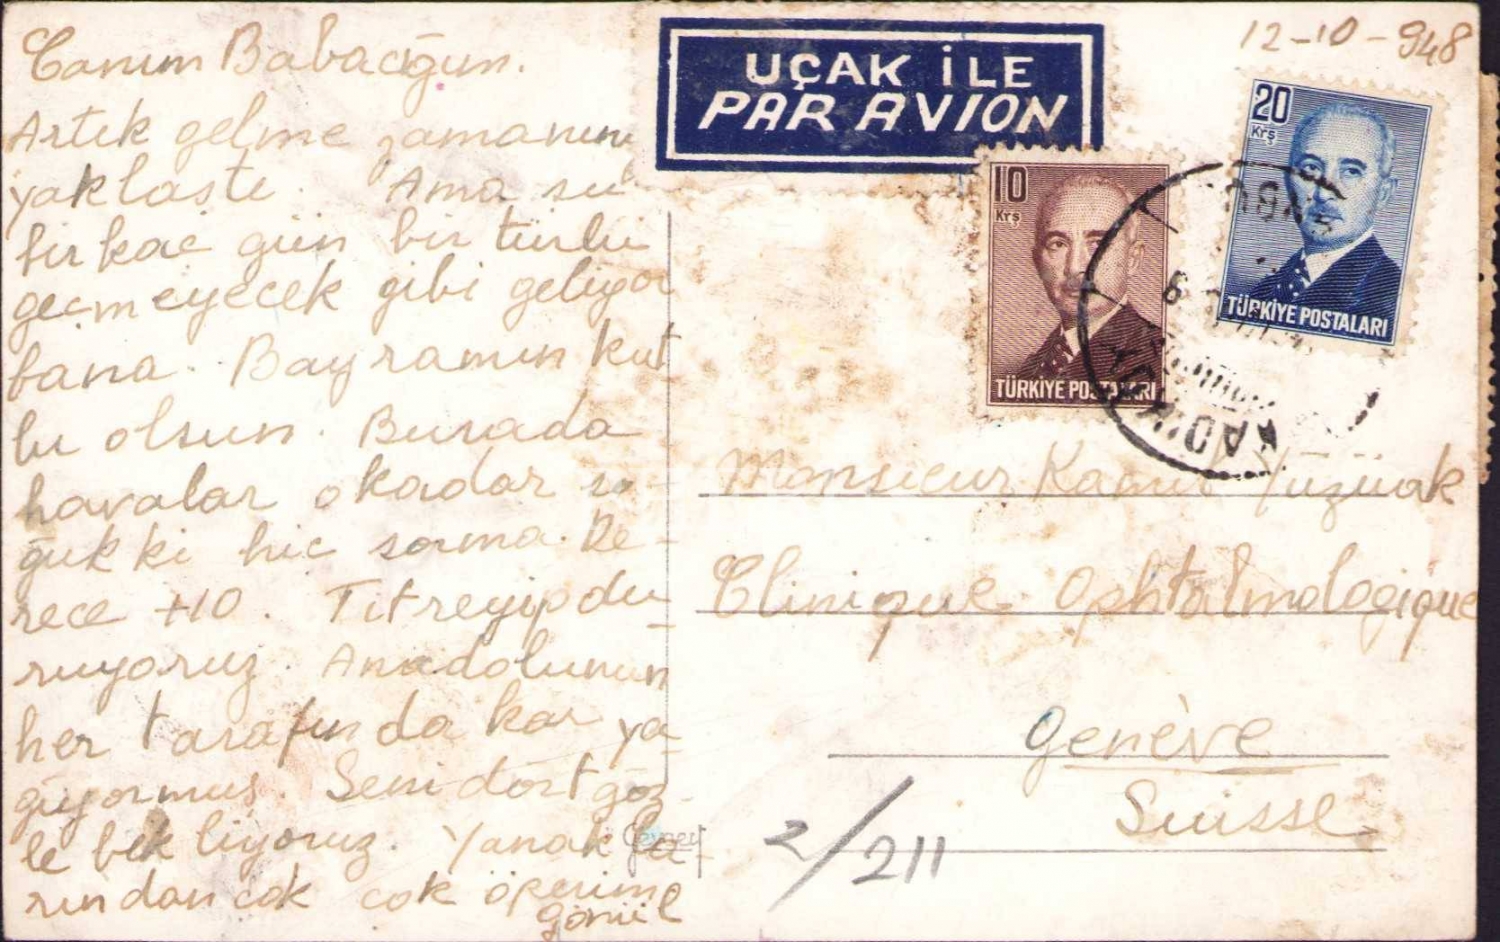 12-10-948
Canım Babacığım.
Artık gelme zamanın
yaklaştı. Ama şu
bir kaç gün bir türlü
geçmeyecek gibi geliyor
bana. Bayramın kut
lu olsun. Burada
havalar okadar so
ğuk ki hiç sorma. De-
rece +10. Titreyip du
ruyoruz. Anadolunun
her tarafında kar ya
ğıyormuş. Seni dört göz
le bekliyoruz. Yanakla-
rından çok çok öperim
Gönül
UÇAK İLE
PAR AVION
10
Krş
TÜRKİYE POSTALARI
20
Krş
TÜRKİYE POSTALARI
Monsieur Kamil Yüzüak
Clinique Ophtalmologique
Genève
Suisse
2/211
Gevaert